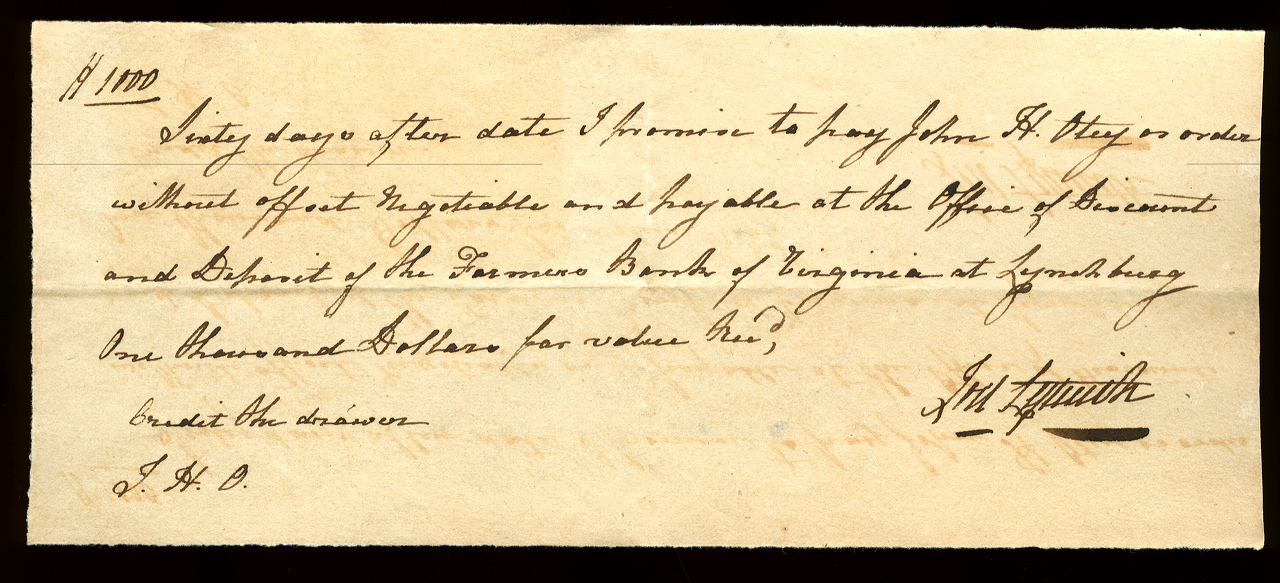 $ 1000
Sixty days after date I promise to pay John H. Otey or order
without offset Negotiable and payable at the Office of Discount
and Deposit of the Farmers Bank of Virginia at Lynchburg
One thousand Dollars for value Recd,
Joel Leftwich
Credit the drawer
J. H. O.